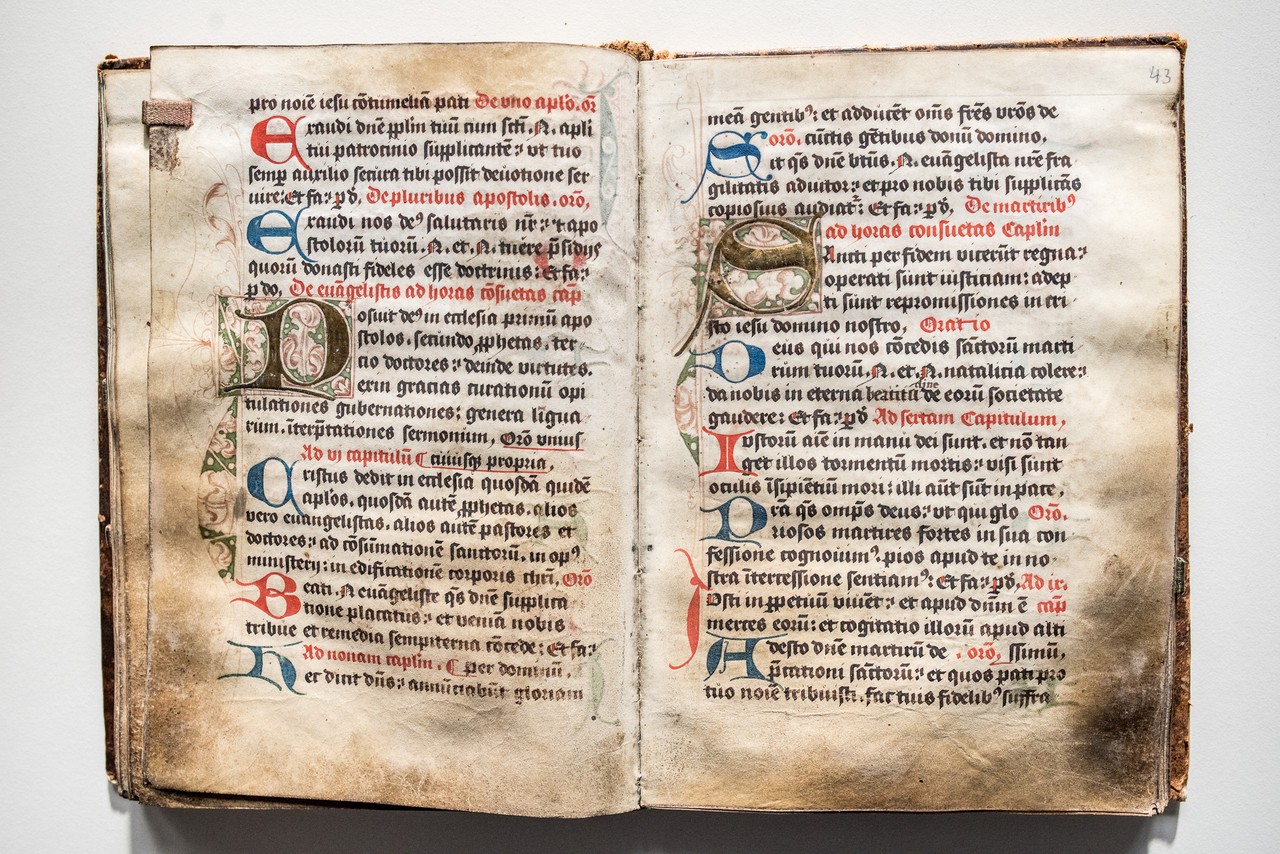 pro noīe iesu cōtumeliā pati De vno aplo. or̄
Exaudi dn̄e pp̄lm tuū cum sctī .N. apli
tui patrocinio supplicantē: vt tuo
semꝑ auxilio secura tibi possit deuotione ser
uire: Et fa: ꝑ dō, De pluribus apostolis. orō,
Exaudi nos deꝰ salutaris nr̄: et apo
stolorū tuorū .N. et .N. tuere p̄sidijs
quorū donasti fideles esse doctrinis: Et fa:
ꝑ do, De euāgelistis ad horas cōsuetas cap̄
Posuit deꝰ in ecclesia primū apo
stolos, secundo ꝓphetas, ter
cio doctores: deinde virtutes.
exin gracias curationū opi
tulationes gubernationes: genera līgua
rum, īterp̄tationes sermonum, Orō vnius
Ad vj capitulū cuiusqꝫ propria,
Cristus dedit in ecclesia quosdā quidē
aplōs, quosdā autē ꝓphetas, alios
vero euangelistas, alios autē pastores et
doctores: ad cōsūmationē sanctorū, in opꝰ
ministerij: in edificationē corporis chrī, Orō
Beati .N. euāgeliste qs̄ dn̄e supplica
tione placatus: et veniā nobis
tribue et remedia sempiterna cōcede: Et fa:
Ad nonam caplm . per dominū,
Hec dicit dn̄s: annūciabūt gloriam
43
meā gentibꝰ: et adducēt om̄s fr̄es vr̄os de
orō, cūctis gētibus donū domino,
Sit qs̄ dn̄e btūs .N. euāgelista nr̄e fra
gilitatis adiutor: et pro nobis tibi supplicās
copiosius audiat: Et fa: ꝑ dō, De martiribꝰ
ad horas consuetas Caplm
Sancti per fidem vicerūt regna:
operati sunt iusticiam: adep
ti sunt repromissiones in cri
sto iesu domino nostro, Oratio
Deus qui nos cōcedis sāctorū marti
rum tuorū .N. et .N. natalicia colere:
dine
da nobis in eterna beatitū de eorū societate
gaudere: Et fa: ꝑ dō Ad sextam Capitulum,
Iustorū aīe in manu dei sunt, et nō tan
get illos tormentū mortis: visi sunt
oculis īsipiētiū mori: illi aūt sūt in pace,
Pr̄a qs̄ omp̄s deus: vt qui glo Orō,
riosos martires fortes in sua con
fessione cognouimꝰ, pios apud te in no
stra ītercessione sentiamꝰ: Et fa: ꝑ dō, Ad ix.
Iusti in ꝑpetuū viuēt: et apud dn̄m ē cap̄
merces eorū: et cogitatio illorū apud alti
Adesto dn̄e martirū de orō, ssimū,
p̄cationi sāctorū: et quos pati pro
tuo noīe tribuisti, fac tuis fidelibꝰ suffra